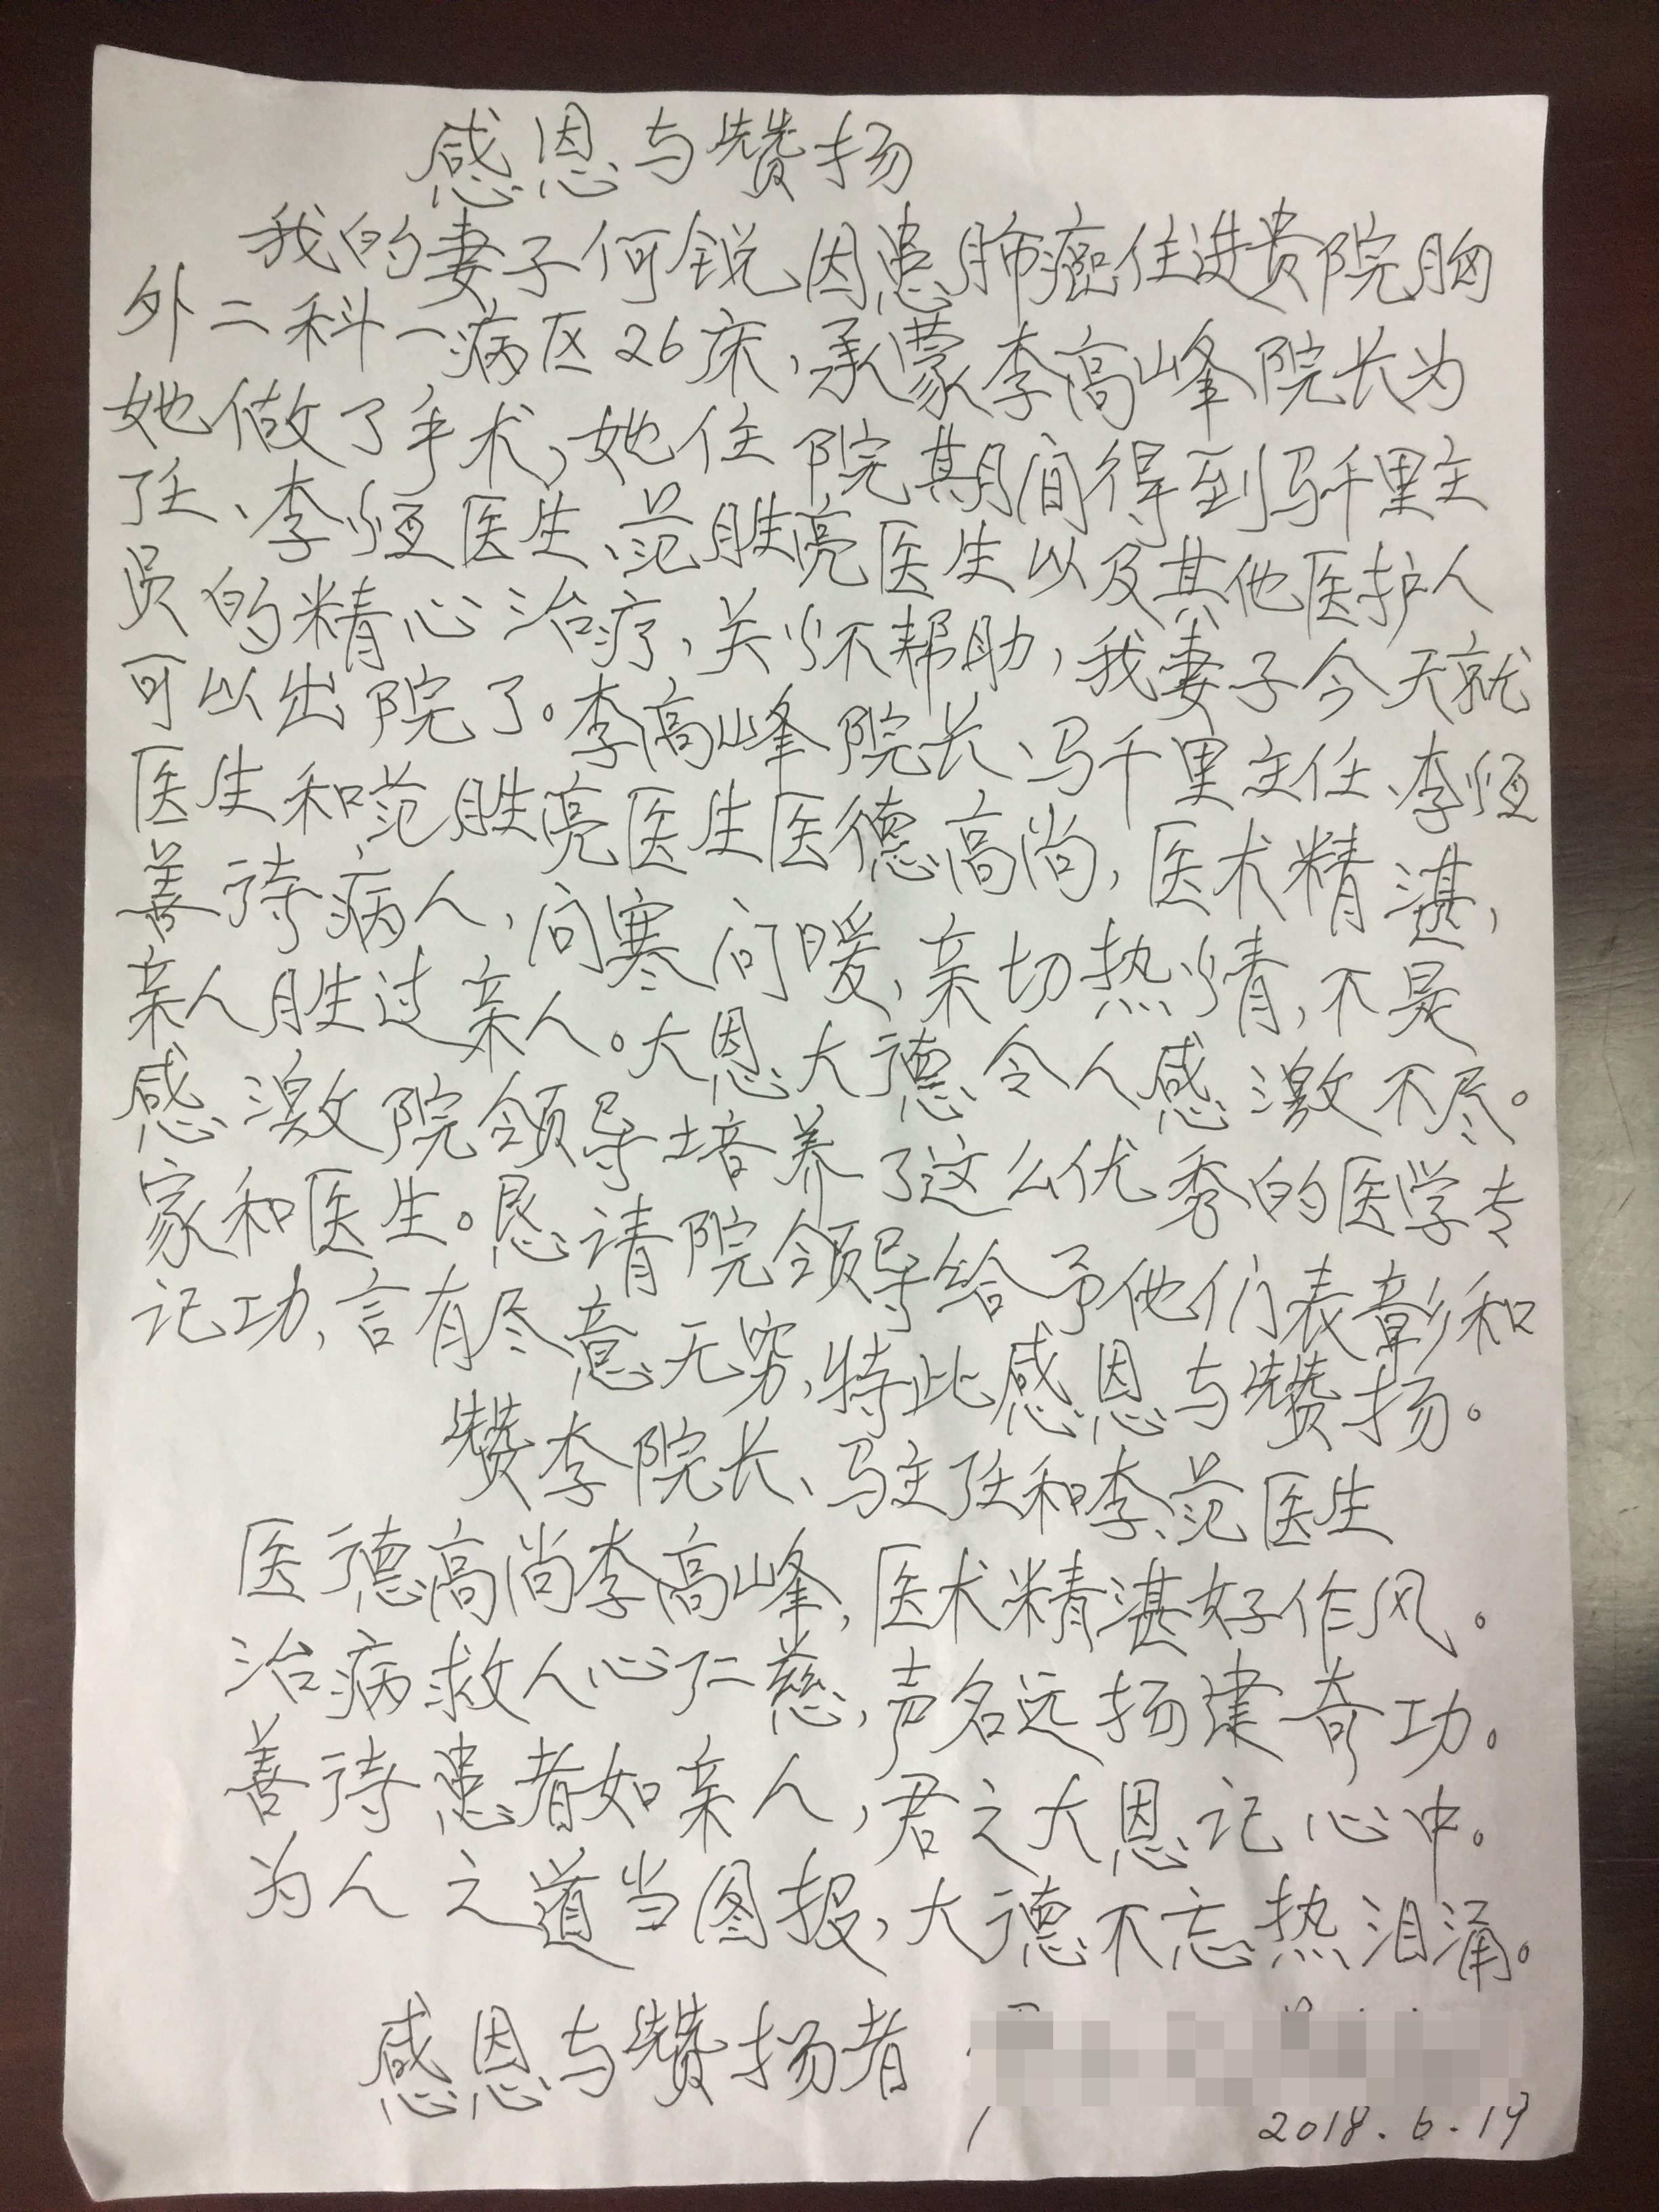 感恩与赞扬
我的妻子何锐、因患肺癌住进贵院胸
外二科一病区26床,承蒙李高峰院长为
她做了手术,她住院期间得到马千里主
任、李恒医生、范胜亮医生以及其他医护人
员的精心治疗,关怀帮助,我妻子今天就
可以出院了。李高峰院长、马千里主任、李恒
医生和范胜亮医生医德高尚,医术精湛,
善待病人,问寒问暖,亲切热情,不是
亲人胜过亲人。大恩大德令人感激不尽。
感激院领导培养了这么优秀的医学专
家和医生。恳请院领导给予他们表彰和
记功,言有尽意无穷,特此感恩与赞扬。
赞李院长、马主任和李、范医生
医德高尚李高峰,医术精湛好作风。
治病救人心仁慈,声名远扬建奇功。
善待患者如亲人,君之大恩记心中。
为人之道当图报,大德不忘热泪涌。
感恩与赞扬者
2018.6.19